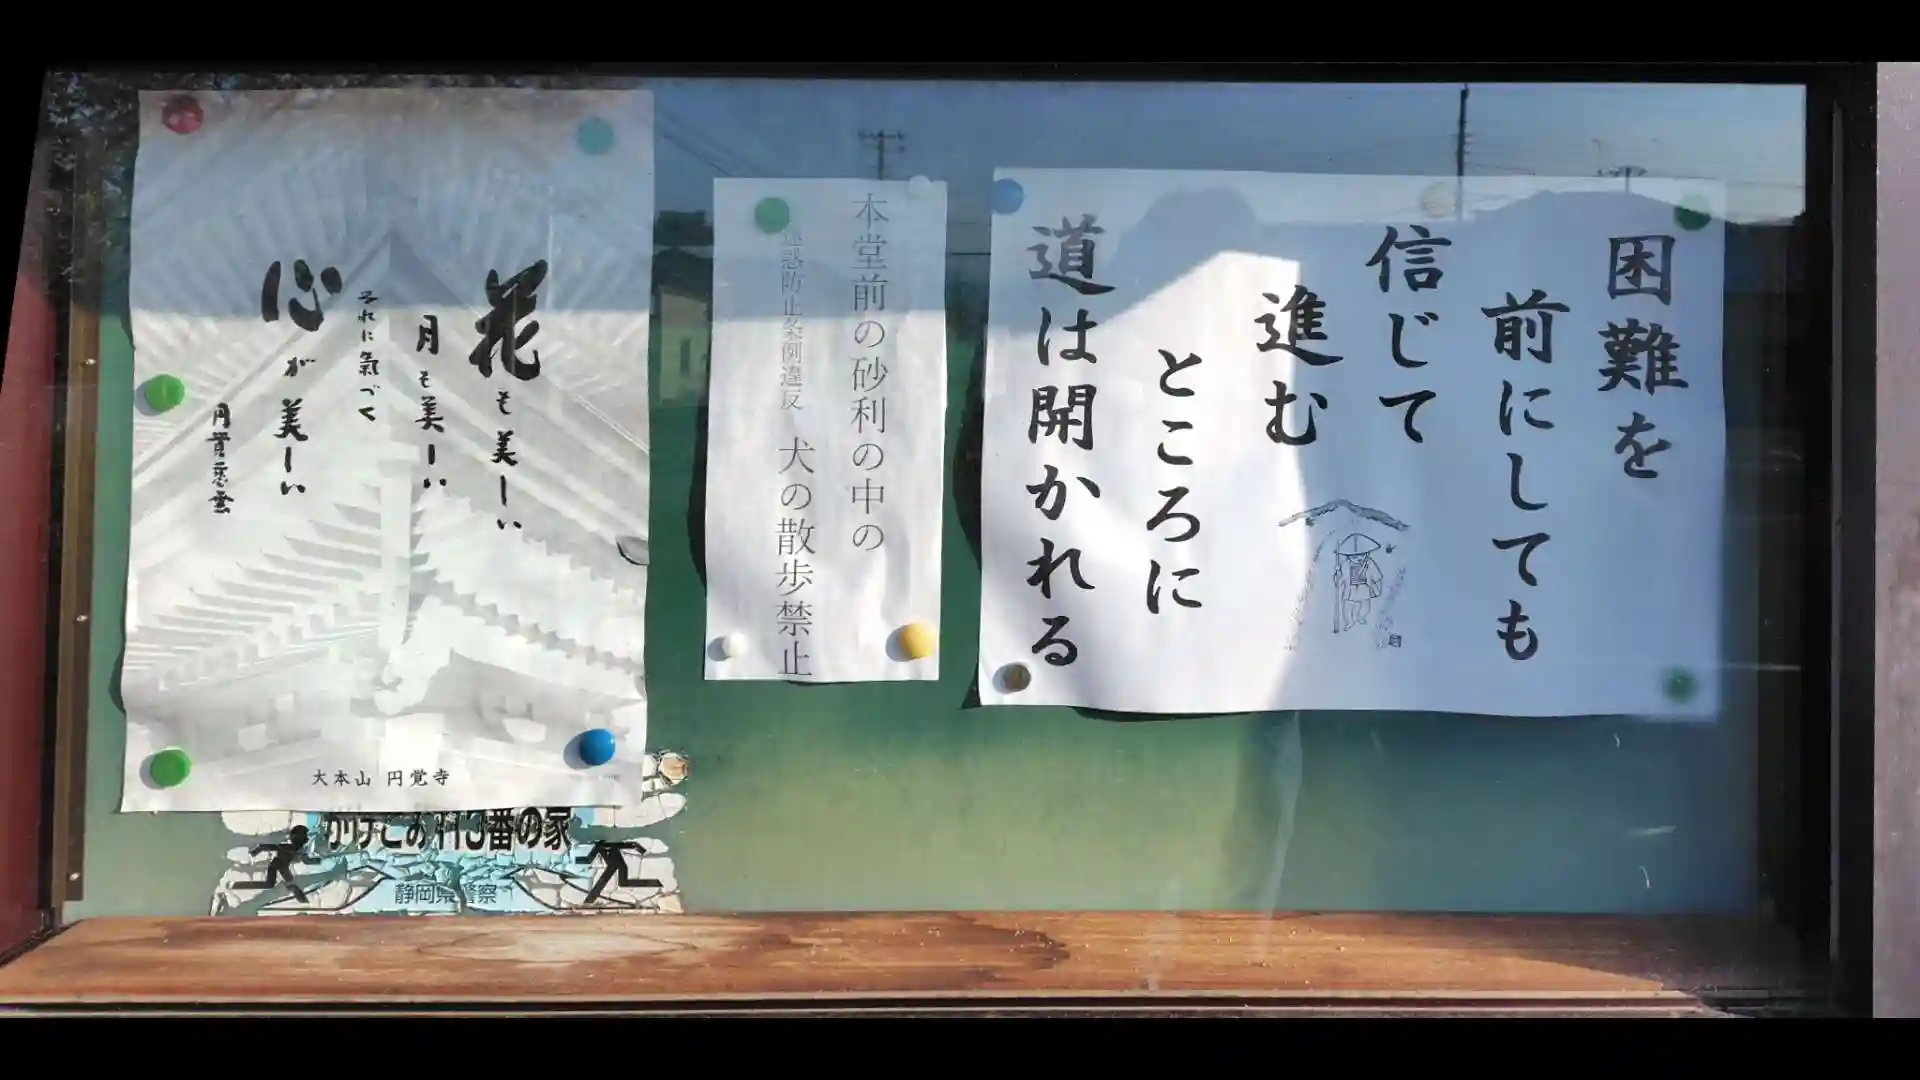 困難を
前にしても
信じて
進む
ところに
道は開かれる
本堂前の砂利の中の
迷惑防止条例違反 犬の散歩禁止
花も美しい
月も美しい
それに氣づく
心が美しい
大本山 円覚寺
かけこみ110番の家
静岡県警察